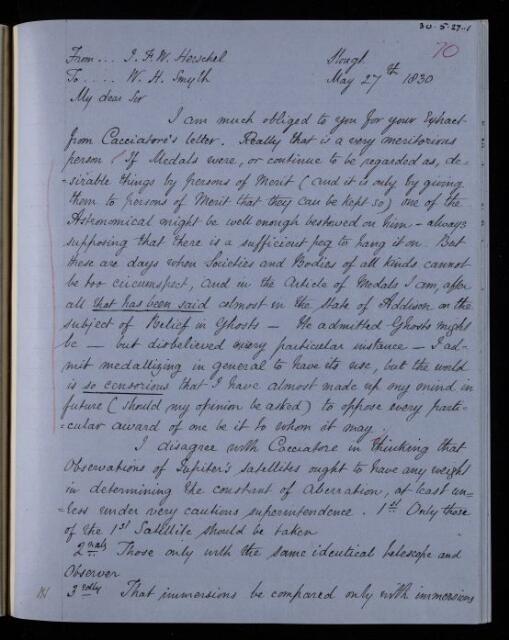 30-5-27-1
70
From... J. F. W. Herschel Slough
To.... W. H. Smyth May 27th 1830
My dear Sir
I am much obliged to you for your Extract
from Cacciatore's letter. Really that is a very meritorious
person. If Medals were, or continue to be, regarded as, de-
=sirable things by persons of Merit (and it is only by giving
them to persons of Merit that they can be kept so) one of the
Astronomical might be well enough bestowed on him - always
supposing that there is a sufficient peg to hang it on. But
these are days when Societies and Bodies of all kinds cannot
be too circumspect, and in the Article of Medals I am, after
all that has been said almost in the state of Addison on the
subject of Belief in Ghosts - He admitted Ghosts might
be - but disbelieved every particular instance - I ad-
mit medallizing in general to have its use, but the world
is so censorious that I have almost made up my mind in
future (should my opinion be asked) to oppose every parti-
=cular award of one be it to whom it may.
I disagree with Cacciatore in thinking that
Observations of Jupiter's satellites ought to have any weight
in determining the constant of Aberration, at least un-
=less under very cautious superintendence. 1st Only those
of the 1st Satellite should be taken
2ndly Those only with the same identical telescope and
Observer
3rdly That immersions be compared only with immersions